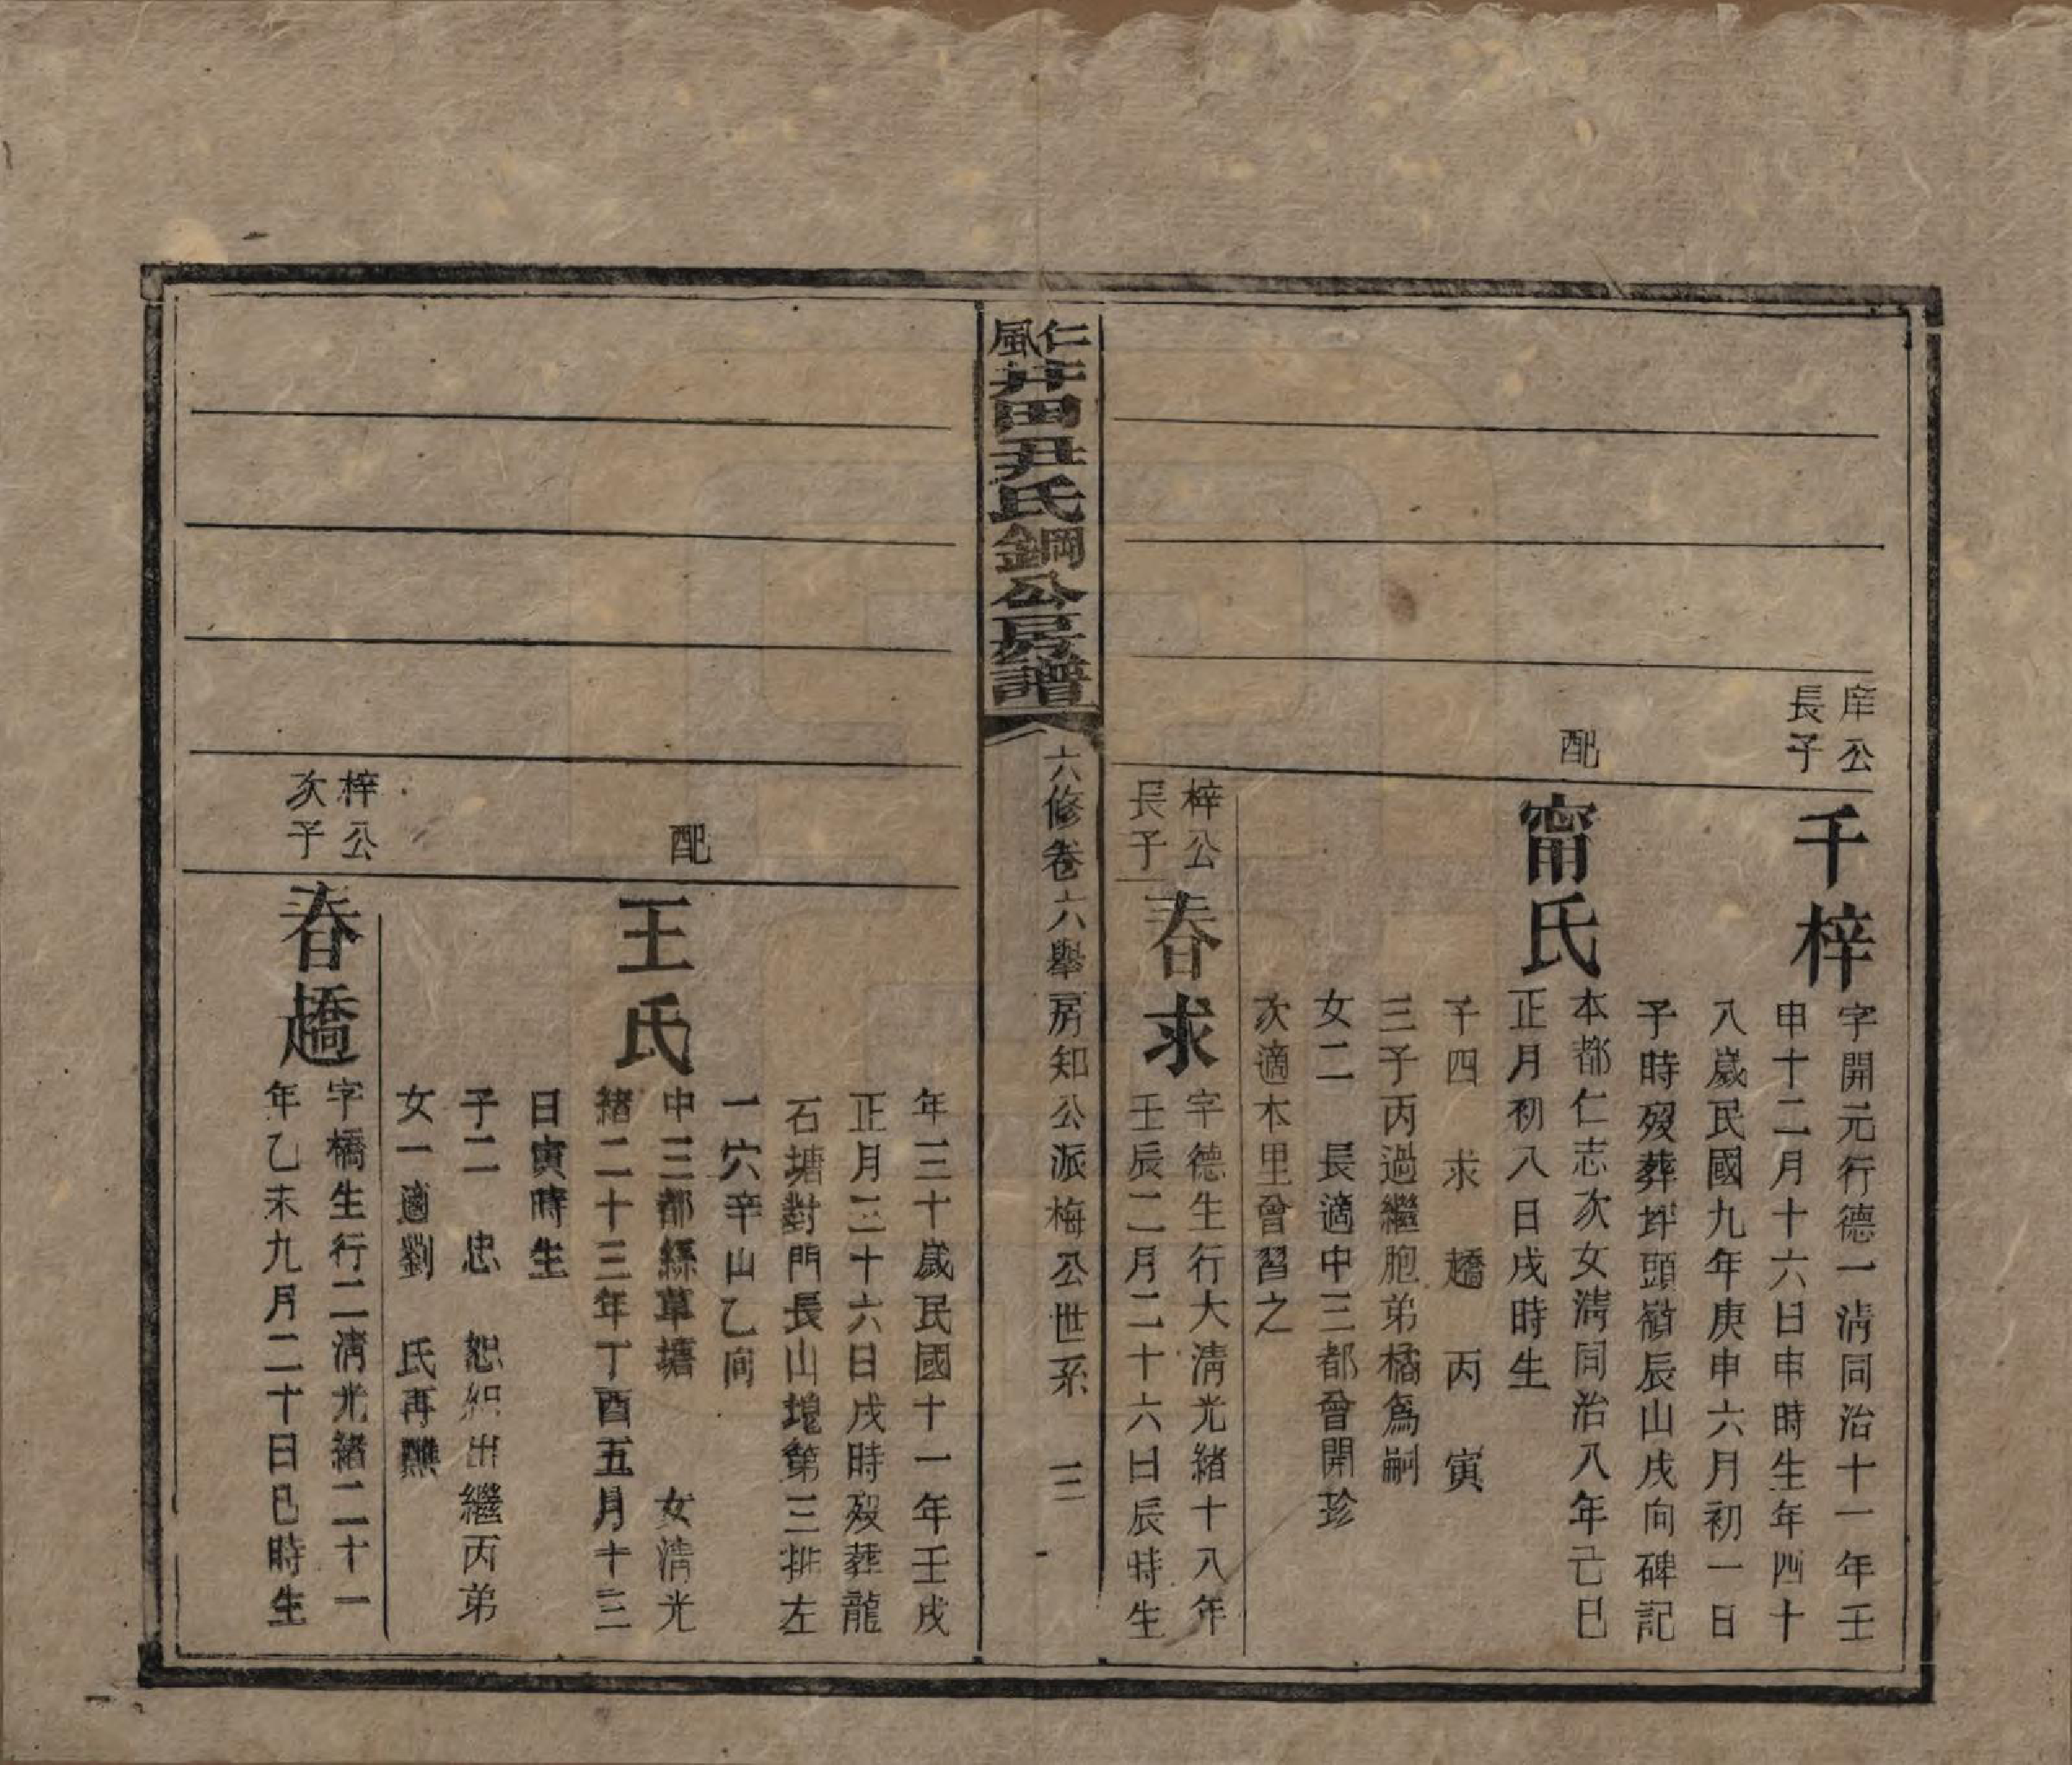 庠公
長子
千梓
字開元行德一清同治十一年壬
申十二月十六日申時生年四十
八歲民國九年庚申六月初一日
子時歿葬坪頭嶺辰山戌向碑記
配
甯氏
本都仁志次女清同治八年己巳
正月初八日戌時生
子四 求 趫 丙 寅
三子丙過繼胞弟橘為嗣
女二 長適中三都曾開珍
次適本里曾習之
梓公
長子
春求
字德生行大清光緒十八年
壬辰二月二十六日辰時生
仁風井田尹氏鋼公房譜
六修卷六舉房知公派梅公世系 三
年三十歲民國十一年壬戌
正月三十六日戌時歿葬龍
石塘對門長山塊第三排左
一穴辛山乙向
配
王氏
中三都絲草塘 女清光
緒二十三年丁酉五月十三
日寅時生
子二 忠 恕 出繼丙弟
女一適劉 氏再醮
梓公
次子
春趫
字橋生行二清光緒二十一
年乙未九月二十日巳時生